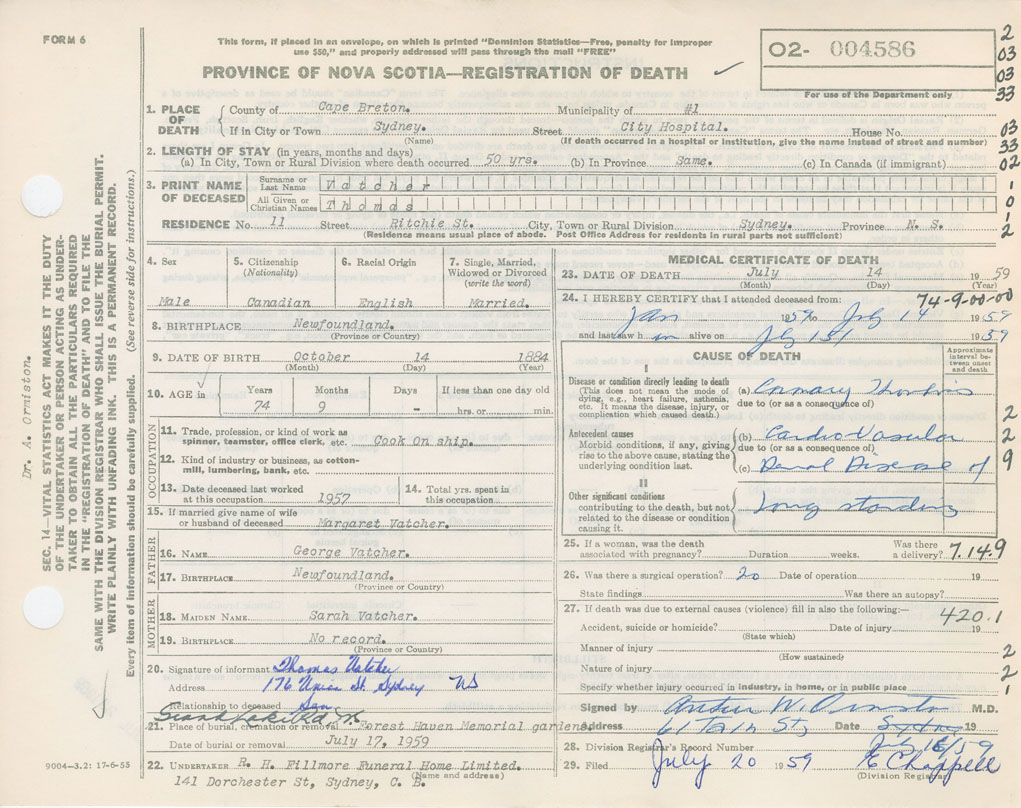 FORM 6
This form, if placed in an envelope, on which is printed "Dominion Statistics—Free, penalty for improper
use $50," and properly addressed will pass through the mail "FREE"
PROVINCE OF NOVA SCOTIA—REGISTRATION OF DEATH
O2- 004586
For use of the Department only
2
03
03
33
03
33
02
1
0
1
2
1. PLACE OF DEATH
County of Cape Breton. Municipality of #1
If in City or Town Sydney. Street City Hospital. House No.
(Name) (If death occurred in a hospital or institution, give the name instead of street and number)
2. LENGTH OF STAY (in years, months and days)
(a) In City, Town or Rural Division where death occurred 50 yrs. (b) In Province Same. (c) In Canada (if immigrant)
3. PRINT NAME OF DECEASED
Surname or Last Name Vatcher
All Given or Christian Names Thomas
RESIDENCE No. 11 Street Ritchie St. City, Town or Rural Division Sydney. Province N. S.
(Residence means usual place of abode. Post Office Address for residents in rural parts not sufficient)
4. Sex Male
5. Citizenship (Nationality) Canadian
6. Racial Origin English
7. Single, Married, Widowed or Divorced (write the word) Married.
8. BIRTHPLACE Newfoundland.
(Province or Country)
9. DATE OF BIRTH October 14 1884
(Month) (Day) (Year)
10. AGE in Years 74 Months 9 Days - If less than one day old hrs. or min.
OCCUPATION
11. Trade, profession, or kind of work as spinner, teamster, office clerk, etc. Cook On ship.
12. Kind of industry or business, as cotton-mill, lumbering, bank, etc.
13. Date deceased last worked at this occupation 1957
14. Total yrs. spent in this occupation
15. If married give name of wife or husband of deceased Margaret Vatcher.
FATHER
16. NAME George Vatcher.
17. BIRTHPLACE Newfoundland.
(Province or Country)
MOTHER
18. MAIDEN NAME Sarah Vatcher.
19. BIRTHPLACE No record.
(Province or Country)
20. Signature of informant Thomas Vatcher
Address 176 Union St. Sydney NS
Relationship to deceased Son
21. Place of burial, cremation or removal Forest Haven Memorial gardens.
Date of burial or removal July 17, 1959
22. UNDERTAKER R. H. Fillmore Funeral Home Limited.
(Name and address)
141 Dorchester St, Sydney, C. B.
MEDICAL CERTIFICATE OF DEATH
23. DATE OF DEATH July 14 1959
(Month) (Day) (Year)
24. I HEREBY CERTIFY that I attended deceased from: 74-9-00-00
Jan 1959 to July 14 1959
and last saw h im alive on July 1959
CAUSE OF DEATH
Approximate interval between onset and death
I
Disease or condition directly leading to death
(This does not mean the mode of dying, e.g., heart failure, asthenia, etc. It means the disease, injury, or complication which caused death.)
(a) Coronary Thrombosis
due to (or as a consequence of)
Antecedent causes
Morbid conditions, if any, giving rise to the above cause, stating the underlying condition last.
(b) Cardio Vascular
due to (or as a consequence of)
(c) Renal Disease of
II
Other significant conditions
contributing to the death, but not related to the disease or condition causing it.
Long standing
2
2
9
25. If a woman, was the death associated with pregnancy? Duration weeks. Was there a delivery? 7.149
26. Was there a surgical operation? Date of operation 19
State findings Was there an autopsy?
27. If death was due to external causes (violence) fill in also the following:— 420.1
Accident, suicide or homicide? Date of injury 19
(State which)
Manner of injury 2
(How sustained)
Nature of injury 2
Specify whether injury occurred in industry, in home, or in public place 1
Signed by Arthur W. Ormiston M.D.
Address Date Sydney 19
28. Division Registrar's Record Number July 18/59
29. Filed July 20 1959 E Chappell
(Division Registrar)
Dr. A. Ormiston.
SEC. 14—VITAL STATISTICS ACT MAKES IT THE DUTY
OF THE UNDERTAKER OR PERSON ACTING AS UNDER-
TAKER TO OBTAIN ALL THE PARTICULARS REQUIRED
IN THE "REGISTRATION OF DEATH" AND TO FILE THE
SAME WITH THE DIVISION REGISTRAR WHO SHALL ISSUE THE BURIAL PERMIT.
WRITE PLAINLY WITH UNFADING INK. THIS IS A PERMANENT RECORD.
Every item of information should be carefully supplied. (See reverse side for instructions.)
9004—3.2: 17-6-55